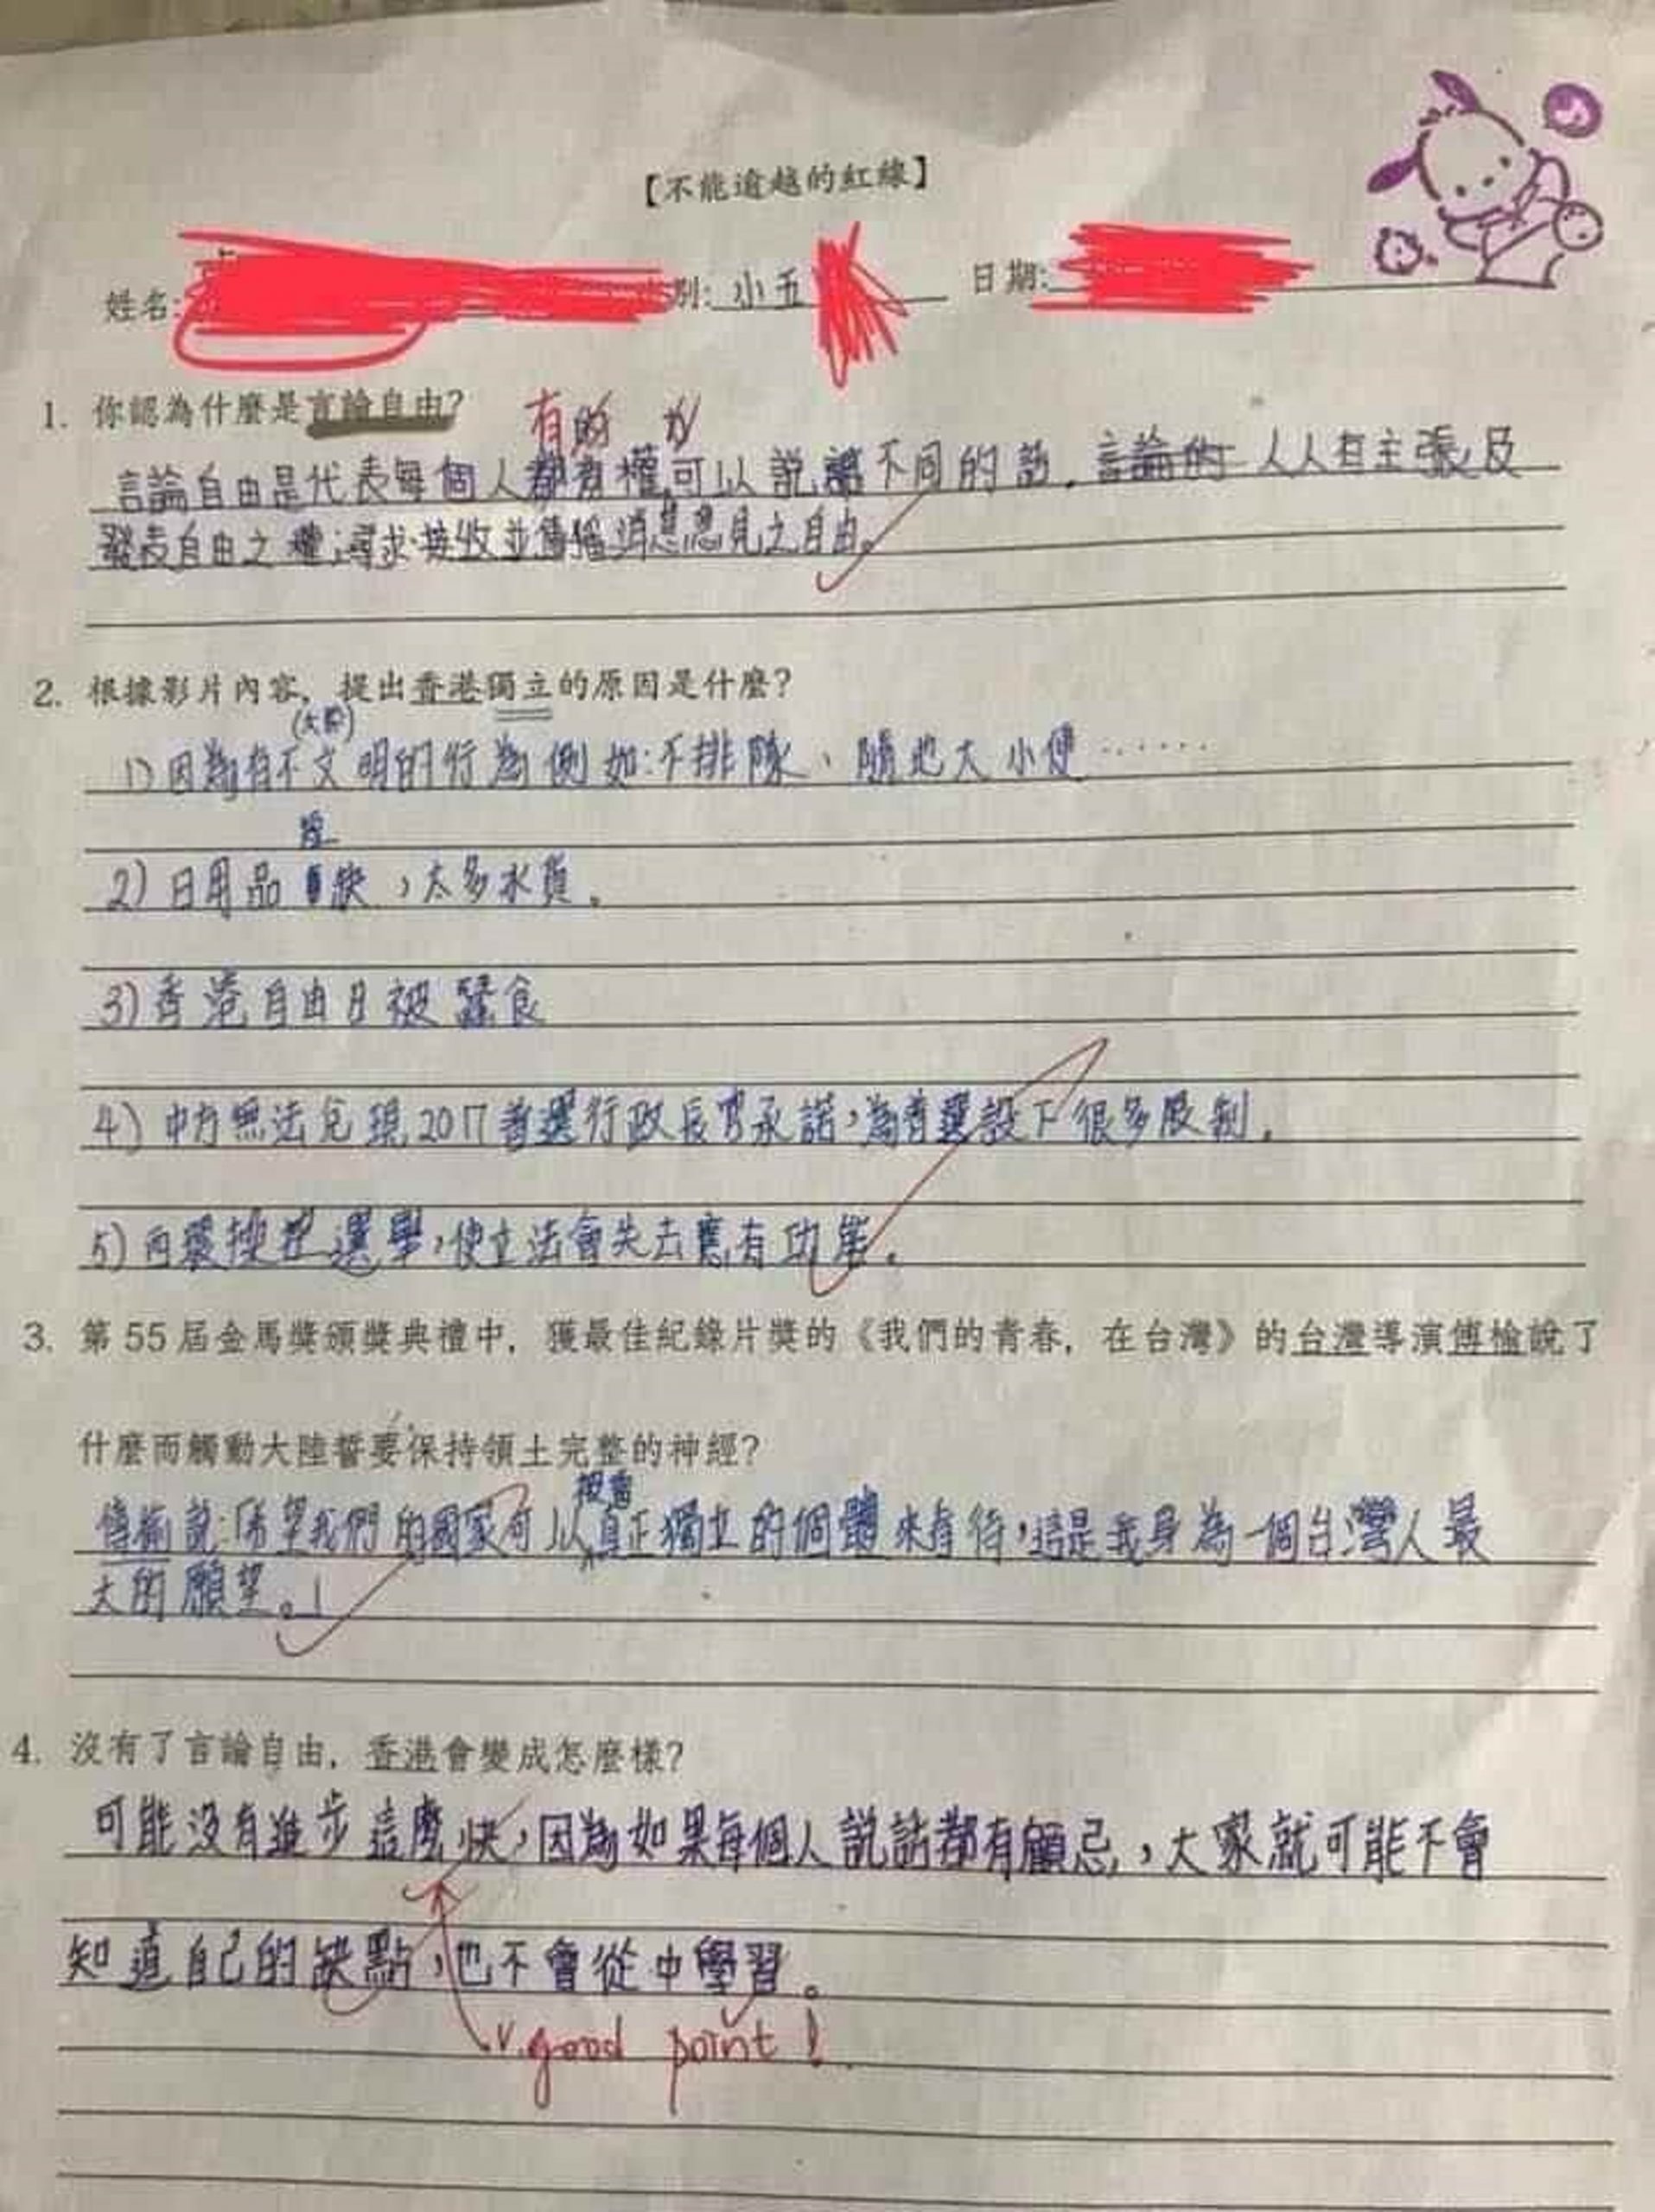 【不能逾越的紅線】
姓名: 別: 小五 日期:
1. 你認為什麼是言論自由?
有的 力
言論自由是代表每個人都有權可以說 不同的話. 言論的 人人有主張及
發表自由之權;尋求接收並傳播消息意見之自由。
2. 根據影片內容,提出香港獨立的原因是什麼?
(大陸)
1) 因為有不文明的行為例如:不排隊、隨地大小便……
2) 日用品 缺,太多水貨.
3) 香港自由日被蠶食
4) 中方無法兌現2017普選行政長官承諾,為普選設下很多限制.
5) 操控選舉,使立法會失去應有功能.
3. 第55屆金馬獎頒獎典禮中,獲最佳紀錄片獎的《我們的青春,在台灣》的台灣導演傅榆說了
什麼而觸動大陸誓要保持領土完整的神經?
被當
傅榆說:「希望我們的國家可以真正獨立的個體來看待,這是我身為一個台灣人最
大的願望。」
4. 沒有了言論自由,香港會變成怎麼樣?
可能沒有進步這麼快,因為如果每個人說話都有顧忌,大家就可能不會
知道自己的缺點,也不會從中學習。
good point!